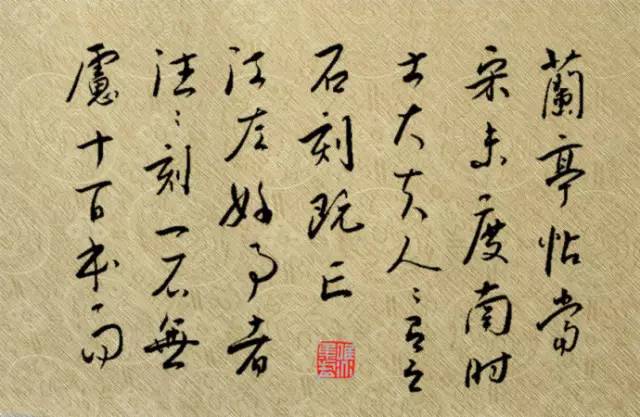 蘭亭帖當
宋未度南时
士大夫人〻有之
石刻既亡
江左好事者
往〻刻一石無
慮十百本而